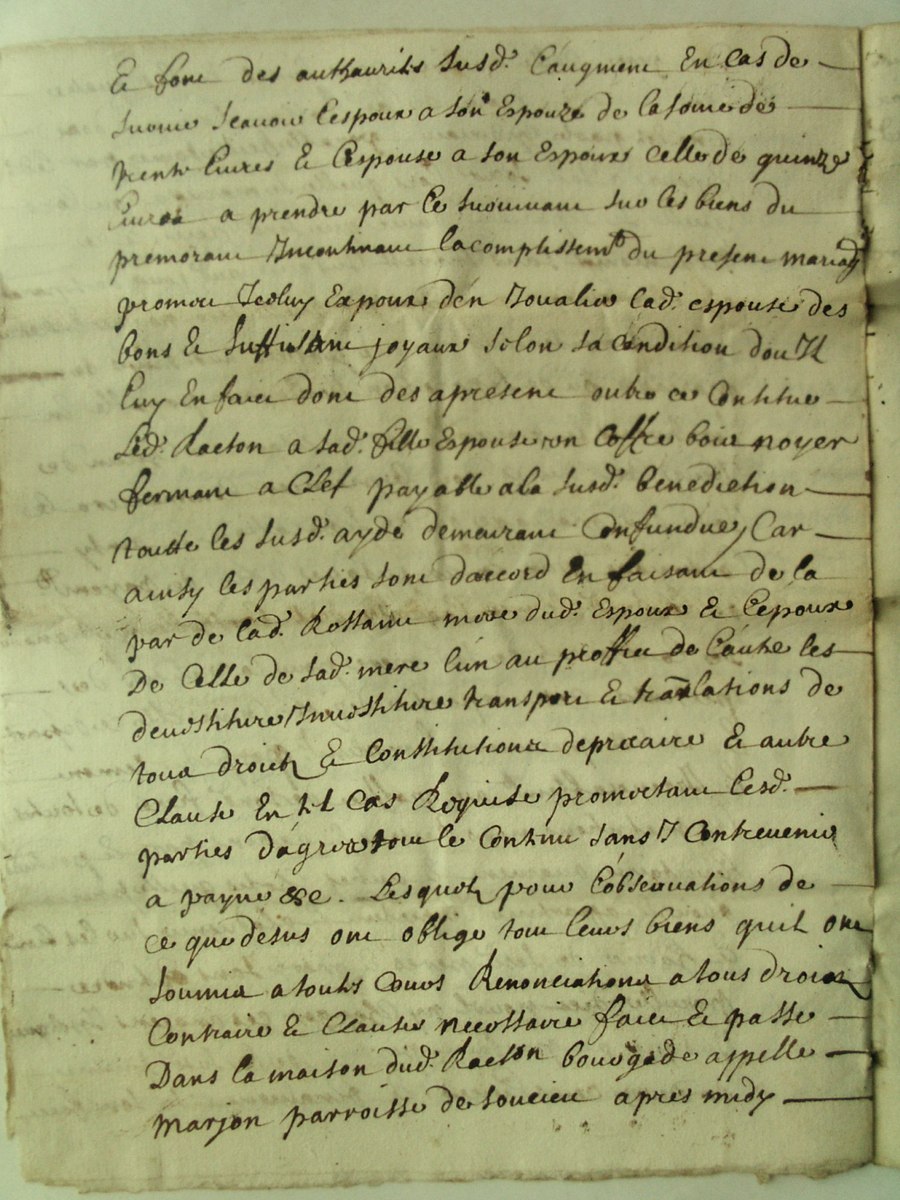 & font des authaurités susd. L'augment En Cas de
survie scavoir l'espoux a son Espouze de la some de
trente livres & l'espouse a son Espoux celle de quinze
livres a prendre par le survivant sur les biens du
premorant Incontinant lacomplissemt du present mariag
promet Iceluy Expoux d'en Joualier lad. espouse des
bons & suffisant joyaux selon sa condition dont Il
luy En faict dont des apresent outre ce Constitue
led. Racton a sad. fille Espouse un Coffre bois noyer
fermant a Clef payable a la susd. benediction
toutte les susd. ayde demeurant Confundues, Car
ainsy les parties sont daccord En faisant de la
par de lad. Rostaint mere dud. Espoux & L'epoux
De Celle de sad. mere l'un au proffict de l'autre les
devestiture Investiture transport & translations de
tous droictz & Constitutions de precaire & autre
Clause En tel Cas Requise promettant lesd.
parties d'agreer tout le Contenu sans y Contrevenir
a payne &c. Lesquelz pour l'observations de
ce que desus ont oblige tout leurs biens quil ont
soumis a toutes Cours Renonciations a tous droictz
Contraire & Clauses necessaire faict & passe
Dans la maison dud. Racton bourgade appelle
Marjon parroisse de soucieu apres midy